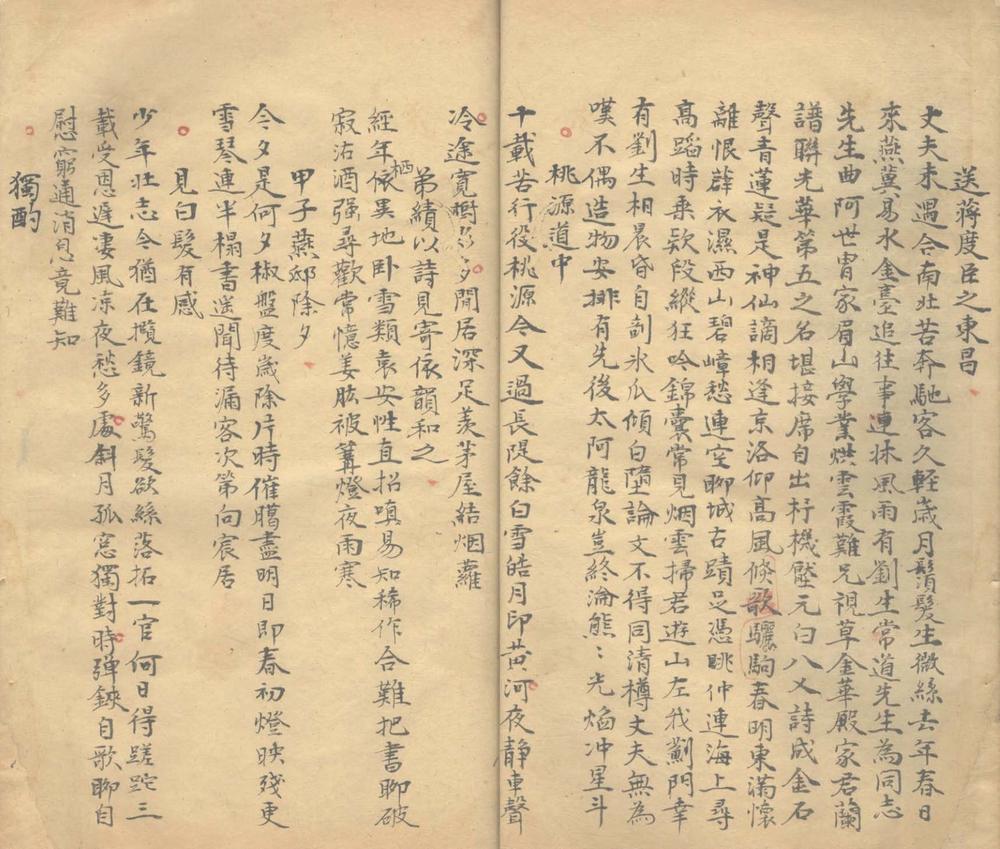 送蔣度臣之東昌
丈夫未遇合南北苦奔馳客久輕歲月鬢髮生微絲去年春日
來燕冀易水金臺追往事連牀風雨有劉生常道先生為同志
先生曲阿世胄家眉山學業烘雲霞難兄視草金華殿家君蘭
譜聯光華第五之名堪接席白出杼機壓元白八乂詩成金石
聲青蓮疑是神仙謫相逢京洛仰高風倏歌驪駒春明東滿懷
離恨辟衣濕西山碧嶂愁連空聊城古蹟足憑眺仲連海上尋
高蹈時乘欵段縱狂吟錦囊常見烟雲掃君遊山左我薊門幸
有劉生相晨昏自剖氷瓜傾白墮論文不得同清樽丈夫無為
嘆不偶造物安排有先後太阿龍泉豈終淪熊〻光焰冲星斗
桃源道中
千載苦行役桃源今又過長隄餘白雪皓月印黃河夜靜車聲
冷途寬樹影多閒居深足羨茅屋結烟蘿
弟績以詩見寄依韻和之
經年依異地卧雪類袁安性直招嗔易知稀作合難把書聊破
栖
寂沽酒强尋歡常憶姜肱被篝燈夜雨寒
甲子燕邸除夕
今夕是何夕椒盤度歲除片時催臈盡明日即春初燈映殘更
雪琴連半榻書遙聞待漏客次第向宸居
見白髮有感
少年壯志今猶在攬鏡新驚髮欲絲落拓一官何日得蹉跎三
載受恩遲淒風凉夜愁多處斜月孤窓獨對時彈鋏自歌聊自
慰窮通消息竟難知
獨酌